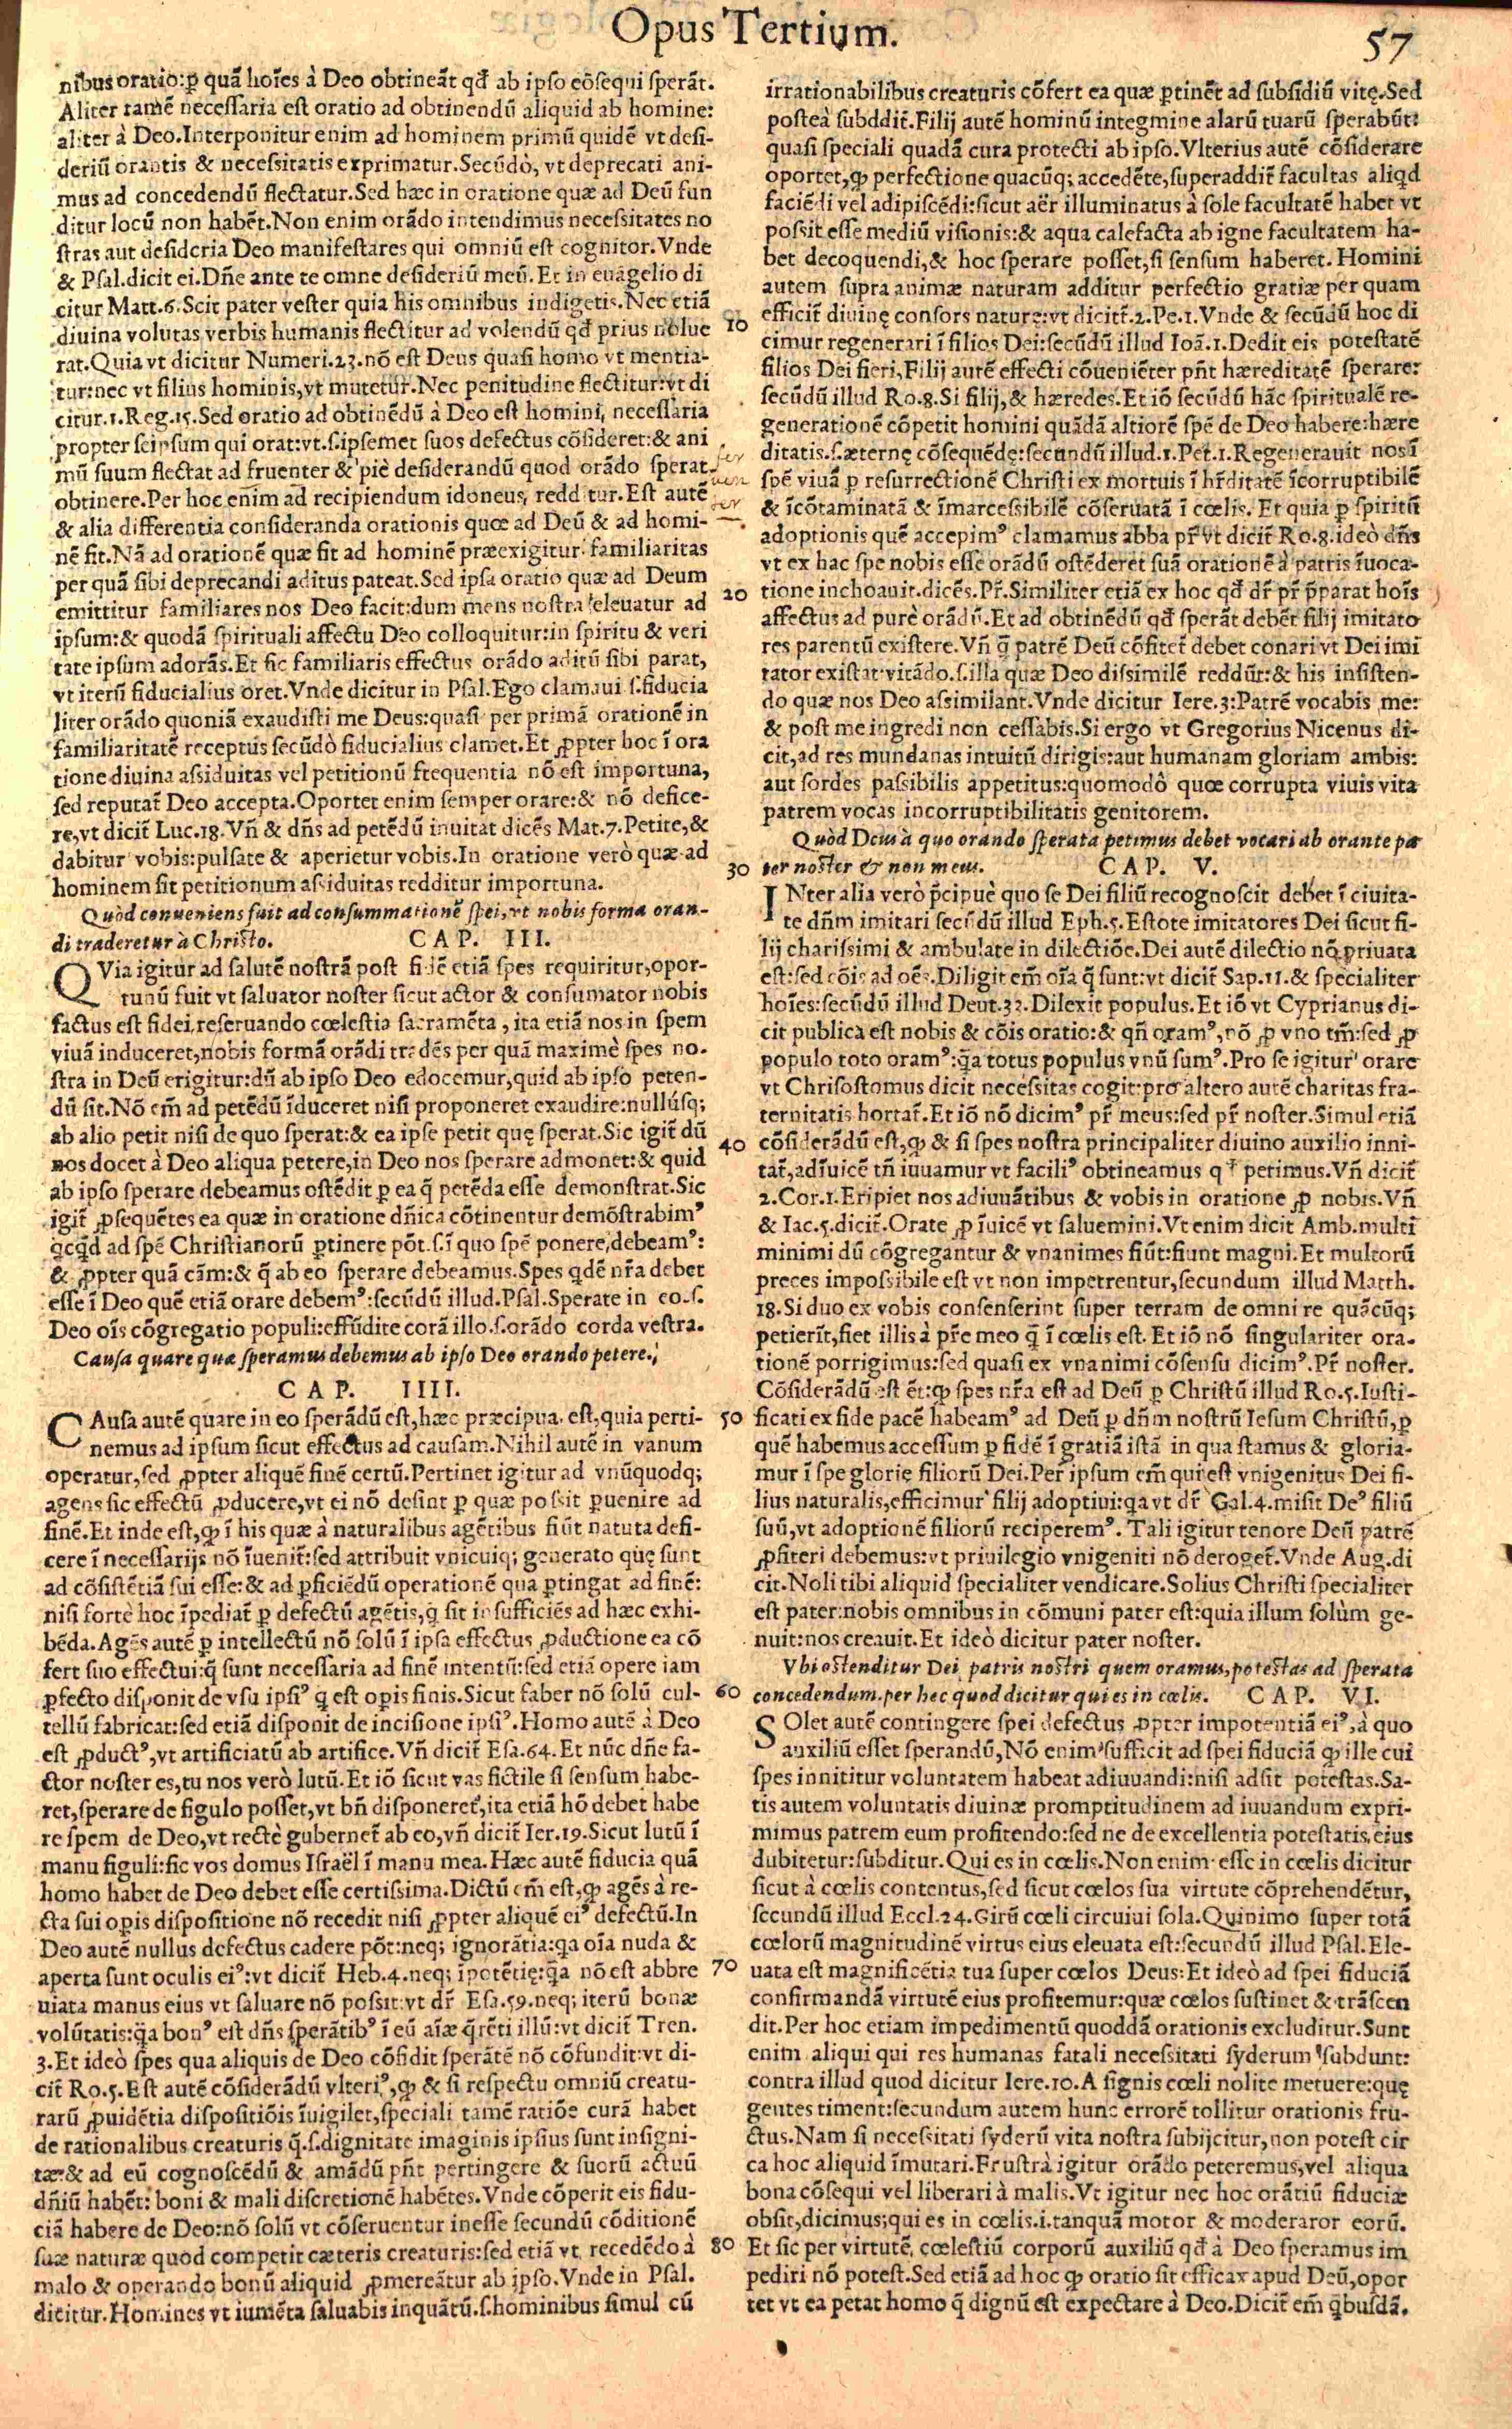 Opus Tertium.
57
nibus oratio: ꝑ quã hoĩes à Deo obtineãt qđ ab ipso cõsequi sperãt.
Aliter tamẽ necessaria est oratio ad obtinendũ aliquid ab homine:
aliter à Deo. Interponitur enim ad hominem primũ quidẽ vt desi-
deriũ orantis & necessitatis exprimatur. Secũdò, vt deprecati ani-
mus ad concedendũ flectatur. Sed hæc in oratione quæ ad Deũ fun
ditur locũ non habẽt. Non enim orãdo intendimus necessitates no
stras aut desideria Deo manifestares qui omniũ est cognitor. Vnde
& Psal. dicit ei. Dñe ante te omne desideriũ meũ. Et in euãgelio di
citur Matt. 6. Scit pater vester quia his omnibus indigetis. Nec etiã
diuina volũtas verbis humanis flectitur ad volendũ qđ prius nolue
rat. Quia vt dicitur Numeri. 23. nõ est Deus quasi homo vt mentia-
tur: nec vt filius hominis, vt mutetur. Nec penitudine flectitur: vt di
citur. 1. Reg. 15. Sed oratio ad obtinẽdũ à Deo est homini, necessaria
propter seipsum qui orat: vt. s. ipsemet suos defectus cõsideret: & ani
mũ suum flectat ad fruenter & piè desiderandũ quod orãdo sperat
obtinere. Per hoc enim ad recipiendum idoneus, redditur. Est autẽ
& alia differentia consideranda orationis quæ ad Deũ & ad homi-
nẽ fit. Nã ad orationẽ quæ fit ad hominẽ præexigitur familiaritas
per quã sibi deprecandi aditus pateat. Sed ipsa oratio quæ ad Deum
emittitur familiares nos Deo facit: dum mens nostra eleuatur ad
ipsum: & quodã spirituali affectu Deo colloquitur: in spiritu & veri
tate ipsum adorãs. Et sic familiaris effectus orãdo aditũ sibi parat,
vt iterũ fiducialius oret. Vnde dicitur in Psal. Ego clamaui. s. fiducia
liter orãdo quoniã exaudisti me Deus: quasi per primã orationẽ in
familiaritatẽ receptus secũdò fiducialius clamet. Et ꝓpter hoc ĩ ora
tione diuina assiduitas vel petitionũ frequentia nõ est importuna,
sed reputat̃ Deo accepta. Oportet enim semper orare: & nõ defice-
re, vt dicit̃ Luc. 18. Vñ & dñs ad petẽdũ inuitat dicẽs Mat. 7. Petite, &
dabitur vobis: pulsate & aperietur vobis. In oratione verò quæ ad
hominem fit petitionum assiduitas redditur importuna.
Quòd conueniens fuit ad consummationẽ spei, vt nobis forma oran-
di traderetur à Christo. CAP. III.
QVia igitur ad salutẽ nostrã post fidẽ etiã spes requiritur, opor-
tunũ fuit vt saluator noster sicut actor & consumator nobis
factus est fidei, reseruando cœlestia sacramẽta, ita etiã nos in spem
viuã induceret, nobis formã orãdi tradẽs per quã maximè spes no-
stra in Deũ erigitur: dũ ab ipso Deo edocemur, quid ab ipso peten-
dũ sit. Nõ em̃ ad petẽdũ ĩduceret nisi proponeret exaudire: nullusq;
ab alio petit nisi de quo sperat: & ea ipse petit quę sperat. Sic igit̃ dũ
nos docet à Deo aliqua petere, in Deo nos sperare admonet: & quid
ab ipso sperare debeamus ostẽdit ꝑ ea q̃ petẽda esse demonstrat. Sic
igit̃ ꝓsequẽtes ea quæ in oratione dñica cõtinentur demõstrabimꝰ
qcqd ad spẽ Christianorũ ꝑtinere põt. s. ĩ quo spẽ ponere, debeamꝰ:
& ꝓpter quã cãm: & q̃ ab eo sperare debeamus. Spes qdẽ nr̃a debet
esse ĩ Deo quẽ etiã orare debemꝰ: secũdũ illud. Psal. Sperate in eo. s.
Deo oĩs cõgregatio populi: effũdite corã illo. s. orãdo corda vestra.
Causa quare quæ speramus debemus ab ipso Deo orando petere.
CAP. IIII.
CAusa autẽ quare in eo sperãdũ est, hæc præcipua, est, quia perti-
nemus ad ipsum sicut effectus ad causam. Nihil autẽ in vanum
operatur, sed ꝓpter aliquẽ finẽ certũ. Pertinet igitur ad vnũquodq;
agens sic effectũ ꝓducere, vt ei nõ desint ꝑ quæ possit ꝑuenire ad
finẽ. Et inde est, ꝙ ĩ his quæ à naturalibus agẽtibus fiũt natuta defi-
cere ĩ necessarijs nõ ĩuenit̃: sed attribuit vnicuiq; generato quę sunt
ad cõsistẽtiã sui esse: & ad ꝑficiẽdũ operationẽ qua ꝑtingat ad finẽ:
nisi fortè hoc ĩpediat̃ ꝑ defectũ agẽtis, q̃ sit insufficiẽs ad hæc exhi-
bẽda. Agẽs autẽ ꝑ intellectũ nõ solũ ĩ ipsa effectus ꝓductione ea cõ
fert suo effectui: q̃ sunt necessaria ad finẽ intentũ: sed etiã opere iam
ꝑfecto disponit de vsu ipsiꝰ q̃ est opis finis. Sicut faber nõ solũ cul-
tellũ fabricat: sed etiã disponit de incisione ipsiꝰ. Homo autẽ à Deo
est ꝓductꝰ, vt artificiatũ ab artifice. Vñ dicit̃ Esa. 64. Et nũc dñe fa-
ctor noster es, tu nos verò lutũ. Et iõ sicut vas fictile si sensum habe-
ret, sperare de figulo posset, vt bñ disponeret̃, ita etiã hõ debet habe
re spem de Deo, vt rectè gubernet̃ ab eo, vñ dicit̃ Ier. 19. Sicut lutũ ĩ
manu figuli: sic vos domus Israël ĩ manu mea. Hæc autẽ fiducia quã
homo habet de Deo debet esse certissima. Dictũ em̃ est, ꝙ agẽs à re-
cta sui opis dispositione nõ recedit nisi ꝓpter aliquẽ eiꝰ defectũ. In
Deo autẽ nullus defectus cadere põt: neq; ignorãtia: qa oĩa nuda &
aperta sunt oculis eiꝰ: vt dicit̃ Heb. 4. neq; ĩpotẽtię: q̃a nõ est abbre
uiata manus eius vt saluare nõ possit: vt dr̃ Esa. 59. neq; iterũ bonæ
volũtatis: q̃a bonꝰ est dñs sperãtibꝰ ĩ eũ aĩæ q̃rẽti illũ: vt dicit̃ Tren.
3. Et ideò spes qua aliquis de Deo cõfidit sperãtẽ nõ cõfundit: vt di-
cit̃ Ro. 5. Est autẽ cõsiderãdũ vlteriꝰ, ꝙ & si respectu omniũ creatu-
rarũ ꝓuidẽtia dispositiõis ĩuigilet, speciali tamẽ ratiõe curã habet
de rationalibus creaturis q̃. s. dignitate imaginis ipsius sunt insigni-
tæ: & ad eũ cognoscẽdũ & amãdũ pñt pertingere & suorũ actuũ
dñiũ habẽt: boni & mali discretionẽ habẽtes. Vnde cõperit eis fidu-
ciã habere de Deo: nõ solũ vt cõseruentur in esse secundũ cõditionẽ
suæ naturæ quod competit cæteris creaturis: sed etiã vt, recedẽdo à
malo & operando bonũ aliquid ꝓmereãtur ab ipso. Vnde in Psal.
dicitur. Homines vt iumẽta saluabis inquãtũ. s. hominibus simul cũ
10
20
30
40
50
60
70
80
irrationabilibus creaturis cõfert ea quæ ꝑtinẽt ad subsidiũ vitę. Sed
posteà subddit̃. Filij autẽ hominũ in tegmine alarũ tuarũ sperabũt:
quasi speciali quadã cura protecti ab ipso. Vlterius autẽ cõsiderare
oportet, ꝙ perfectione quacũq; accedẽte, superaddit̃ facultas aliqd
faciẽdi vel adipiscẽdi: sicut aër illuminatus à sole facultatẽ habet vt
possit esse mediũ visionis: & aqua calefacta ab igne facultatem ha-
bet decoquendi, & hoc sperare posset, si sensum haberet. Homini
autem supra animæ naturam additur perfectio gratiæ per quam
efficit̃ diuinę consors naturę: vt dicitt̃. 2. Pe. 1. Vnde & secũdũ hoc di
cimur regenerari ĩ filios Dei: secũdũ illud Ioã. 1. Dedit eis potestatẽ
filios Dei fieri, Filij autẽ effecti cõueniẽter pñt hæreditatẽ sperare:
secũdũ illud Ro. 8. Si filij, & hæredes. Et iõ secũdũ hãc spiritualẽ re-
generationẽ cõpetit homini quãdã altiorẽ spẽ de Deo habere: hære
ditatis. s. æternę cõsequẽdę: secundũ illud. 1. Pet. 1. Regenerauit nos ĩ
spẽ viuã ꝑ resurrectionẽ Christi ex mortuis ĩ hr̃ditatẽ ĩcorruptibilẽ
& ĩcõtaminatã & ĩmarcessibilẽ cõseruatã ĩ cœlis. Et quia ꝑ spiritũ
adoptionis quẽ accepimꝰ clamamus abba pr̃ vt dicit̃ Ro. 8. ideò dñs
vt ex hac spe nobis esse orãdũ ostẽderet suã orationẽ à patris ĩuoca-
tione inchoauit. dicẽs. Pr̃. Similiter etiã ex hoc qđ dr̃ pr̃ p̃parat hoĩs
affectus ad purè orãdũ. Et ad obtinẽdũ qđ sperãt debẽt filij imitato
res parentũ existere. Vñ q̃ patrẽ Deũ cõfitet̃ debet conari vt Dei imi
tator existat vitãdo. s. illa quæ Deo dissimilẽ reddũt: & his insisten-
do quæ nos Deo assimilant. Vnde dicitur Iere. 3: Patrẽ vocabis me:
& post me ingredi non cessabis. Si ergo vt Gregorius Nicenus di-
cit, ad res mundanas intuitũ dirigis: aut humanam gloriam ambis:
aut sordes passibilis appetitus: quomodò quæ corrupta viuis vita
patrem vocas incorruptibilitatis genitorem.
Quòd Deus à quo orando sperata petimus debet vocari ab orante pa
ter noster & non meus. CAP. V.
INter alia verò p̃cipuè quo se Dei filiũ recognoscit debet ĩ ciuita-
te dñm imitari secũdũ illud Eph. 5. Estote imitatores Dei sicut fi-
lij charissimi & ambulate in dilectiõe. Dei autẽ dilectio nõ priuata
est: sed cõis ad oẽs. Diligit em̃ oĩa q̃ sunt: vt dicit̃ Sap. 11. & specialiter
hoĩes: secũdũ illud Deut. 32. Dilexit populus. Et iõ vt Cyprianus di-
cit publica est nobis & cõis oratio: & qñ oramꝰ, nõ ꝓ vno tm̃: sed ꝓ
populo toto oramꝰ: q̃a totus populus vnũ sumꝰ. Pro se igitur orare
vt Chrisostomus dicit necessitas cogit: pro altero autẽ charitas fra-
ternitatis hortat̃. Et iõ nõ dicimꝰ pr̃ meus: sed pr̃ noster. Simul etiã
cõsiderãdũ est, ꝙ & si spes nostra principaliter diuino auxilio inni-
tat̃, adĩuicẽ tñ iuuamur vt faciliꝰ obtineamus qđ petimus. Vñ dicit̃
2. Cor. 1. Eripiet nos adiuuãtibus & vobis in oratione ꝓ nobis. Vñ
& Iac. 5. dicit̃. Orate ꝓ ĩuicẽ vt saluemini. Vt enim dicit Amb. multi
minimi dũ cõgregantur & vnanimes fiũt: fiunt magni. Et multorũ
preces impossibile est vt non impetrentur, secundum illud Matth.
18. Si duo ex vobis consenserint super terram de omni re quãcũq;
petierĩt, fiet illis à pr̃e meo q̃ ĩ cœlis est. Et iõ nõ singulariter ora-
tionẽ porrigimus: sed quasi ex vnanimi cõsensu dicimꝰ. Pr̃ noster.
Cõsiderãdũ est ẽt: ꝙ spes nr̃a est ad Deũ ꝑ Christũ illud Ro. 5. Iusti-
ficati ex fide pacẽ habeamꝰ ad Deũ ꝑ dñm nostrũ Iesum Christũ, ꝑ
quẽ habemus accessum ꝑ fidẽ ĩ gratiã istã in qua stamus & gloria-
mur ĩ spe glorię filiorũ Dei. Per ipsum em̃ qui est vnigenitus Dei fi-
lius naturalis, efficimur filij adoptiui: qa vt dr̃ Gal. 4. misit Deꝰ filiũ
suũ, vt adoptionẽ filiorũ reciperemꝰ. Tali igitur tenore Deũ patrẽ
ꝓfiteri debemus: vt priuilegio vnigeniti nõ deroget̃. Vnde Aug. di
cit. Noli tibi aliquid specialiter vendicare. Solius Christi specialiter
est pater: nobis omnibus in cõmuni pater est: quia illum solùm ge-
nuit: nos creauit. Et ideò dicitur pater noster.
Vbi ostenditur Dei patris nostri quem oramus, potestas ad sperata
concedendum. per hec quod dicitur qui es in cœlis. CAP. VI.
SOlet autẽ contingere spei defectus ꝓpter impotentiã eiꝰ, à quo
auxiliũ esset sperandũ, Nõ enim sufficit ad spei fiduciã ꝙ ille cui
spes innititur voluntatem habeat adiuuandi: nisi adsit potestas. Sa-
tis autem voluntatis diuinæ promptitudinem ad iuuandum expri-
mimus patrem eum profitendo: sed ne de excellentia potestatis, eius
dubitetur: subditur. Qui es in cœlis. Non enim esse in cœlis dicitur
sicut à cœlis contentus, sed sicut cœlos sua virtute cõprehendẽtur,
secundũ illud Eccl. 24. Girũ cœli circuiui sola. Quinimo super totã
cœlorũ magnitudinẽ virtus eius eleuata est: secundũ illud Psal. Ele-
uata est magnificẽtia tua super cœlos Deus: Et ideò ad spei fiduciã
confirmandã virtutẽ eius profitemur: quæ cœlos sustinet & trãscen
dit. Per hoc etiam impedimentũ quoddã orationis excluditur. Sunt
enim aliqui qui res humanas fatali necessitati syderum subdunt:
contra illud quod dicitur Iere. 10. A signis cœli nolite metuere: quę
gentes timent: secundum autem hunc errorẽ tollitur orationis fru-
ctus. Nam si necessitati syderũ vita nostra subijcitur, non potest cir
ca hoc aliquid ĩmutari. Frustrà igitur orãdo peteremus, vel aliqua
bona cõsequi vel liberari à malis. Vt igitur nec hoc orãtiũ fiduciæ
obsit, dicimus; qui es in cœlis. i. tanquã motor & moderaror eorũ.
Et sic per virtutẽ, cœlestiũ corporũ auxiliũ qđ à Deo speramus im
pediri nõ potest. Sed etiã ad hoc ꝙ oratio sit efficax apud Deũ, opor
tet vt ea petat homo q̃ dignũ est expectare à Deo. Dicit̃ em̃ q̃busdã.